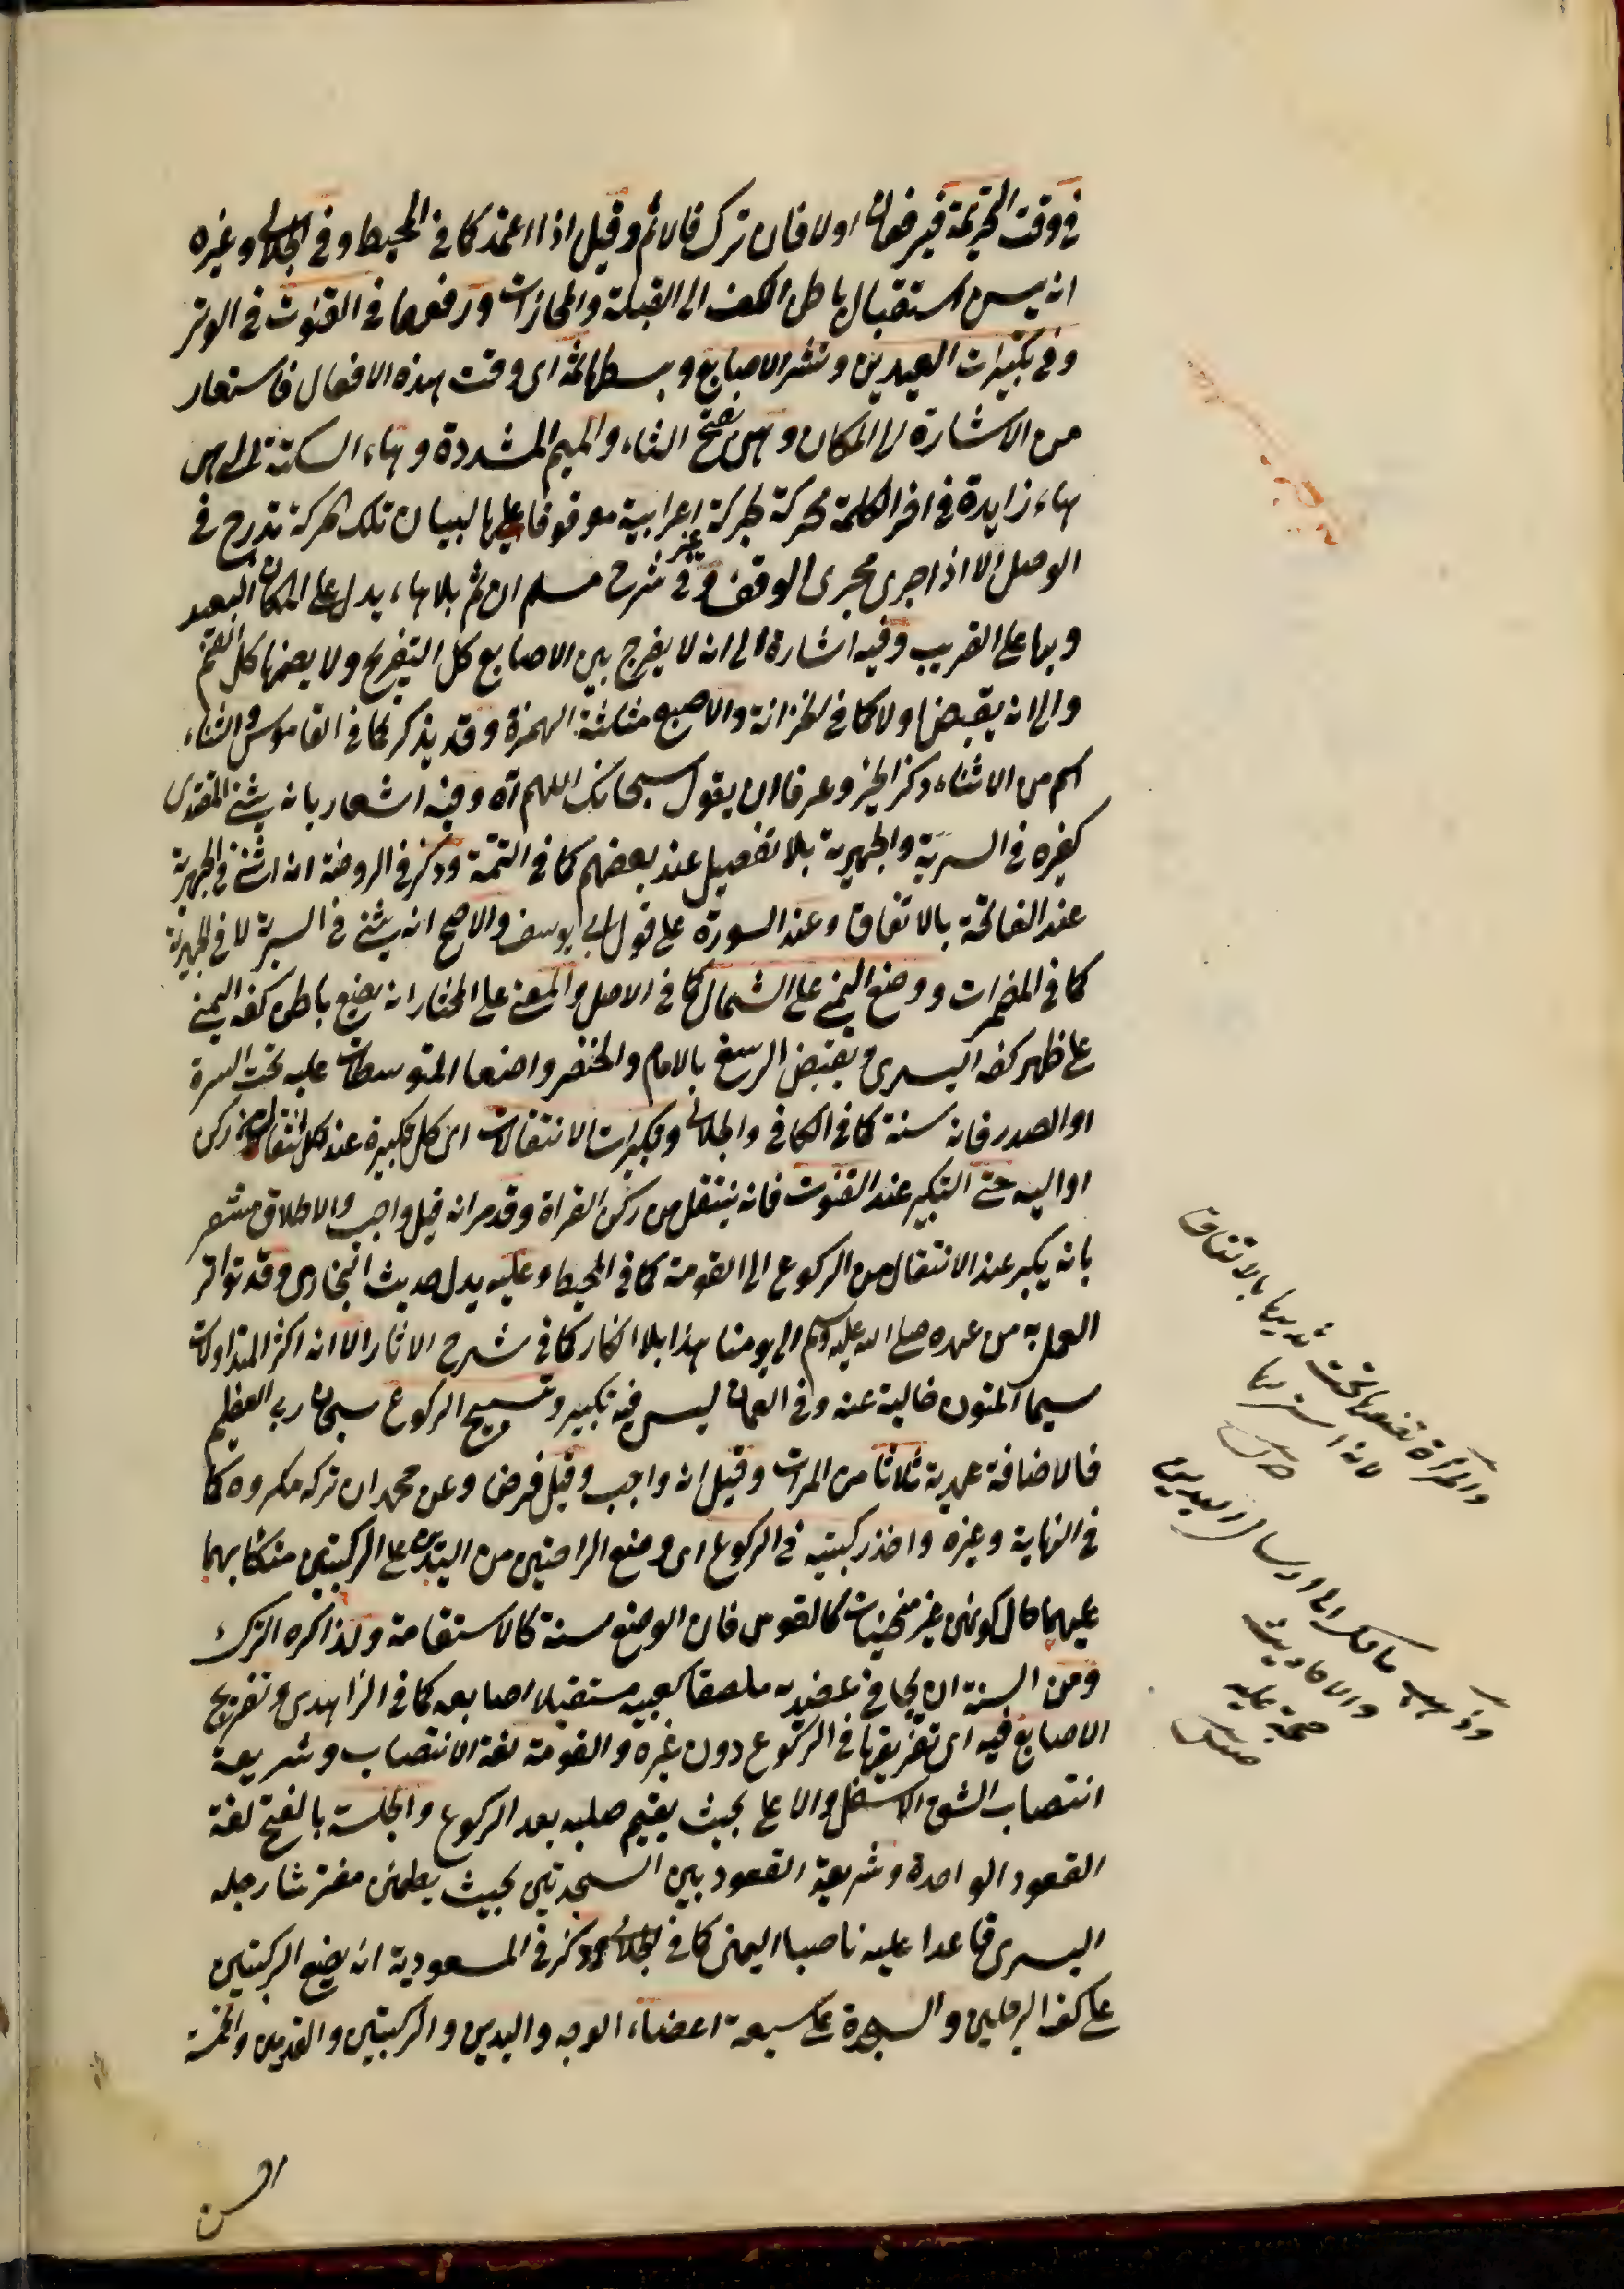 في وقت التحريمة فيرفعان اولا فان ترك فالاثم وقيل اذا اعتمد كما في المحيط وفي الجلابي وغيره
انه يسن استقبال باطن الكف الى القبلة والمحازات ورفعهما في القنوت في الوتر
وفي تكبيرات العيدين ونشر الاصابع وبسطها ثمه اى وقت هذه الافعال فاستعار
من الاشارة الى المكان وهى بفتح الثاء والميم المشددة وهاء السكتة التى هى
هاء زايدة في اخر الكلمة محركة بحركة غير اعرابية موقوفا عليها لبيان تلك الحركة تدرج في
الوصل الا اذا جرى مجرى الوقف وفي شرح مسلم ان ثم بلا هاء يدل على المكان البعيد
وبها على القريب وفيه اشارة الى انه لا يفرج بين الاصابع كل التفريج ولا يضمها كل الضم
والى انه يقبض اولا كما في الخزانة والاصبع مثلثة الهمزة وقد يذكر كما في القاموس والثناء
اسم من الاثناء ذكر الخير وعرفا ان يقول سبحانك اللهم آه وفيه اشعار بانه يثنى المقتدى
كغيره في السرية والجهرية بلا تفصيل عند بعضهم كما في التتمة وذكر في الروضة انه اثنى في الجهرية
عند الفاتحة بالاتفاق وعند السورة على قول ابى يوسف والاصح انه يثنى في السرية لا في الجهرية
كما في المضمرات ووضع اليمنى على الشمال كما في الاصل والمعنى على المختار ان يضع باطن كفه اليمنى
على ظهر كفه اليسرى ويقبض الرسغ بالابهام والخنصر واضعا المتوسطات عليه تحت السرة
او الصدر فانه سنة كما في الكافي والجلابى وتكبيرات الانتقالات اى كل تكبيرة عند كل انتقال من ركن
او اليه حتى التكبير عند القنوت فانه ينتقل من ركن القراة وقد مر انه قيل واجب والاطلاق مشعر
بانه يكبر عند الانتقال من الركوع الى القومة كما في المحيط وعليه يدل حديث البخارى وقد تواتر
العمل به من عهده صلى الله عليه وسلم الى يومنا هذا بلا انكار كما في شرح الاثار الا انه اكثر المتداولات
سيما المتون خالية عنه وفي العمان ليس فيه تكبير وتسبيح الركوع سبحان ربى العظيم
فالاضافة عهدية ثلاثا من المرات وقيل انه واجب وقيل فرض وعن محمد ان تركه مكروه كما
في النهاية وغيره واخذ ركبتيه في الركوع اى وضع الراحتين من اليدين على الركبتين متكئا بهما
عليهما حال كونهن غير منحنيات كالقوس فان الوضع سنة كالاستقامة ولذا كره الترك
ومن السنة ان يجافى عضديه ملصقا كعبيه مستقبلا اصابعه كما في الزاهدى وتفريج
الاصابع فيه اى تفريقها في الركوع دون غيره والقومة لغة الانتصاب وشريعة
انتصاب الشق الاسفل والاعلى بحيث يقيم صلبه بعد الركوع والجلسة بالفتح لغة
القعود الواحدة وشريعة القعود بين السجدتين بحيث يطمئن مفترشا رجله
اليسرى قاعدا عليه ناصبا اليمنى كما في الجلابى وذكر في المسعودية انه يضع الركبتين
على كف الرجلين والسجدة على سبعة اعضاء الوجه واليدين والركبتين والقدمين والخمسة
والمرأة تضعها تحت ثدييها بالاتفاق
لانه استر لها
وذهب مالك الى ارسال اليدين
والاحاديث
حجة عليه